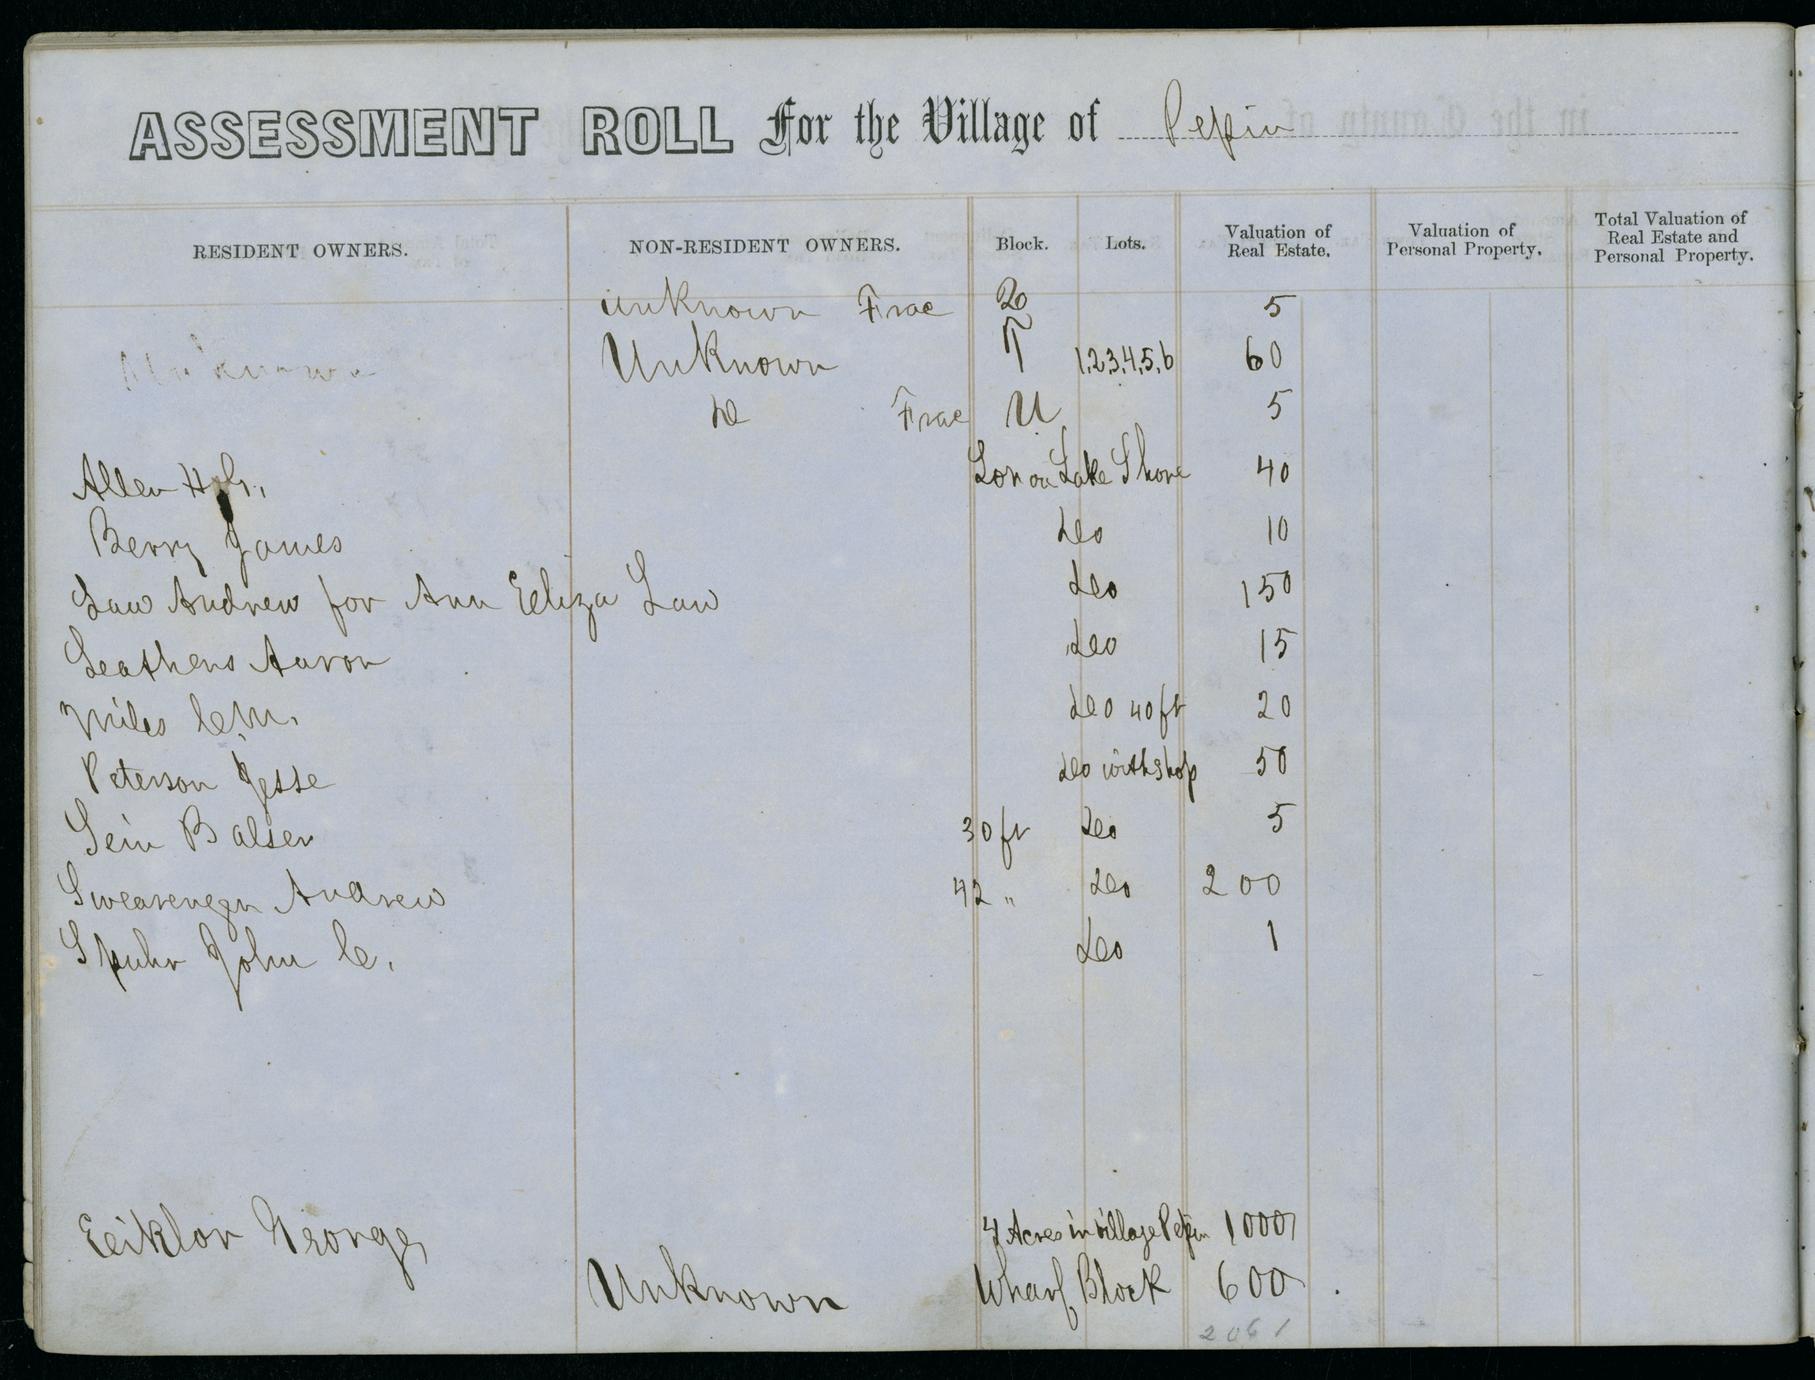 ASSESSMENT ROLL For the Village of Pepin
RESIDENT OWNERS. NON-RESIDENT OWNERS. Block. Lots. Valuation of Real Estate. Valuation of Personal Property. Total Valuation of Real Estate and Personal Property.
unknown Frac 5
Unknown Unknown T 1,2,3,4,5,6 60
do Frac U 5
Allen Lot on Lake Shore 40
Berry James do 10
Law Andrew for Ann Eliza Law do 150
Leathers Aaron do 15
Miles C.M. do 40 ft 20
Peterson Jesse do with shop 50
Sein Balser 30 ft do 5
Swearengen Andrew 42 " do 200
Spuhr John C. do 1
George 4 Acres in village Pepin 1000
Unknown Wharf Block 600
2061